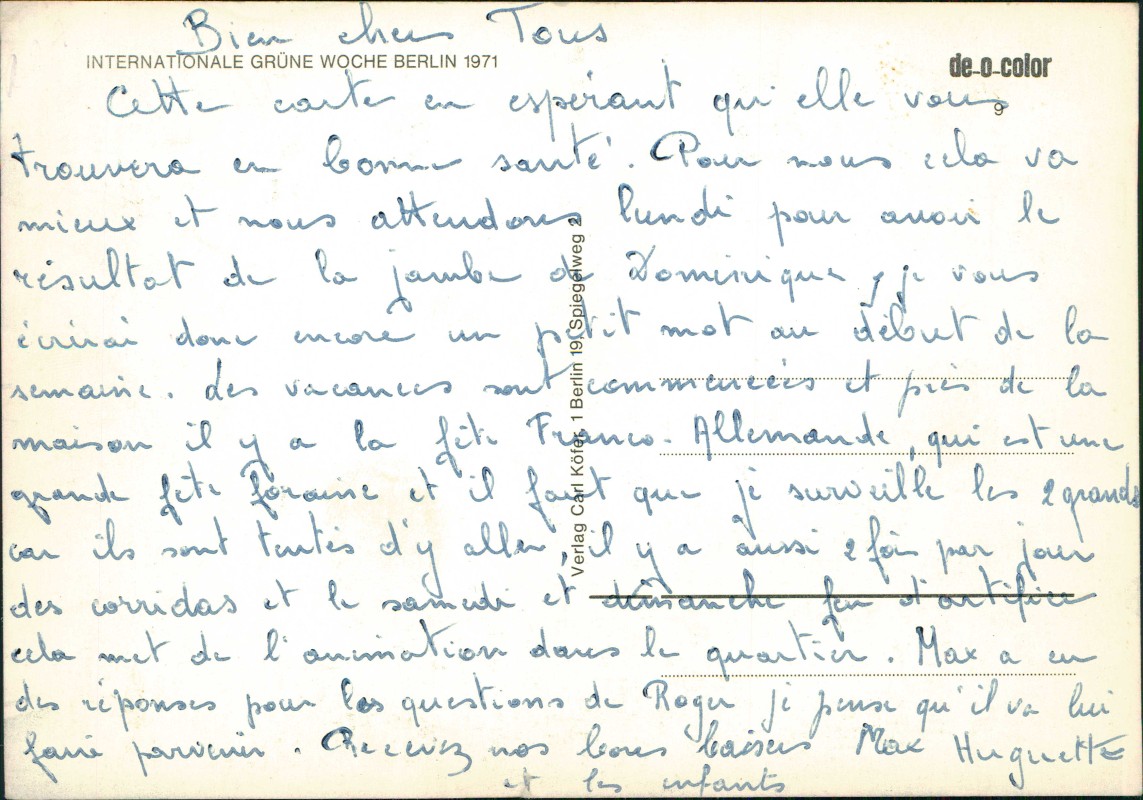 Bien chers Tous
INTERNATIONALE GRÜNE WOCHE BERLIN 1971
de-o-color
9
Cette carte en espérant qu'elle vous
trouvera en bonne santé. Pour nous cela va
mieux et nous attendons lundi pour avoir le
résultat de la jambe de Dominique, je vous
écrirai donc encore un petit mot au début de la
semaine. Les vacances sont commencées et près de la
maison il y a la fête Franco-Allemande, qui est une
grande fête foraine et il faut que je surveille les 2 grands
car ils sont tentés d'y aller, il y a aussi 2 fois par jour
des corridas et le samedi et dimanche feu d'artifice
cela met de l'animation dans le quartier. Max a eu
des réponses pour les questions de Roger je pense qu'il va lui
faire parvenir. Recevez nos bons baisers Max Huguette
et les enfants
Verlag Carl Köfer, 1 Berlin 19, Spiegelweg 2